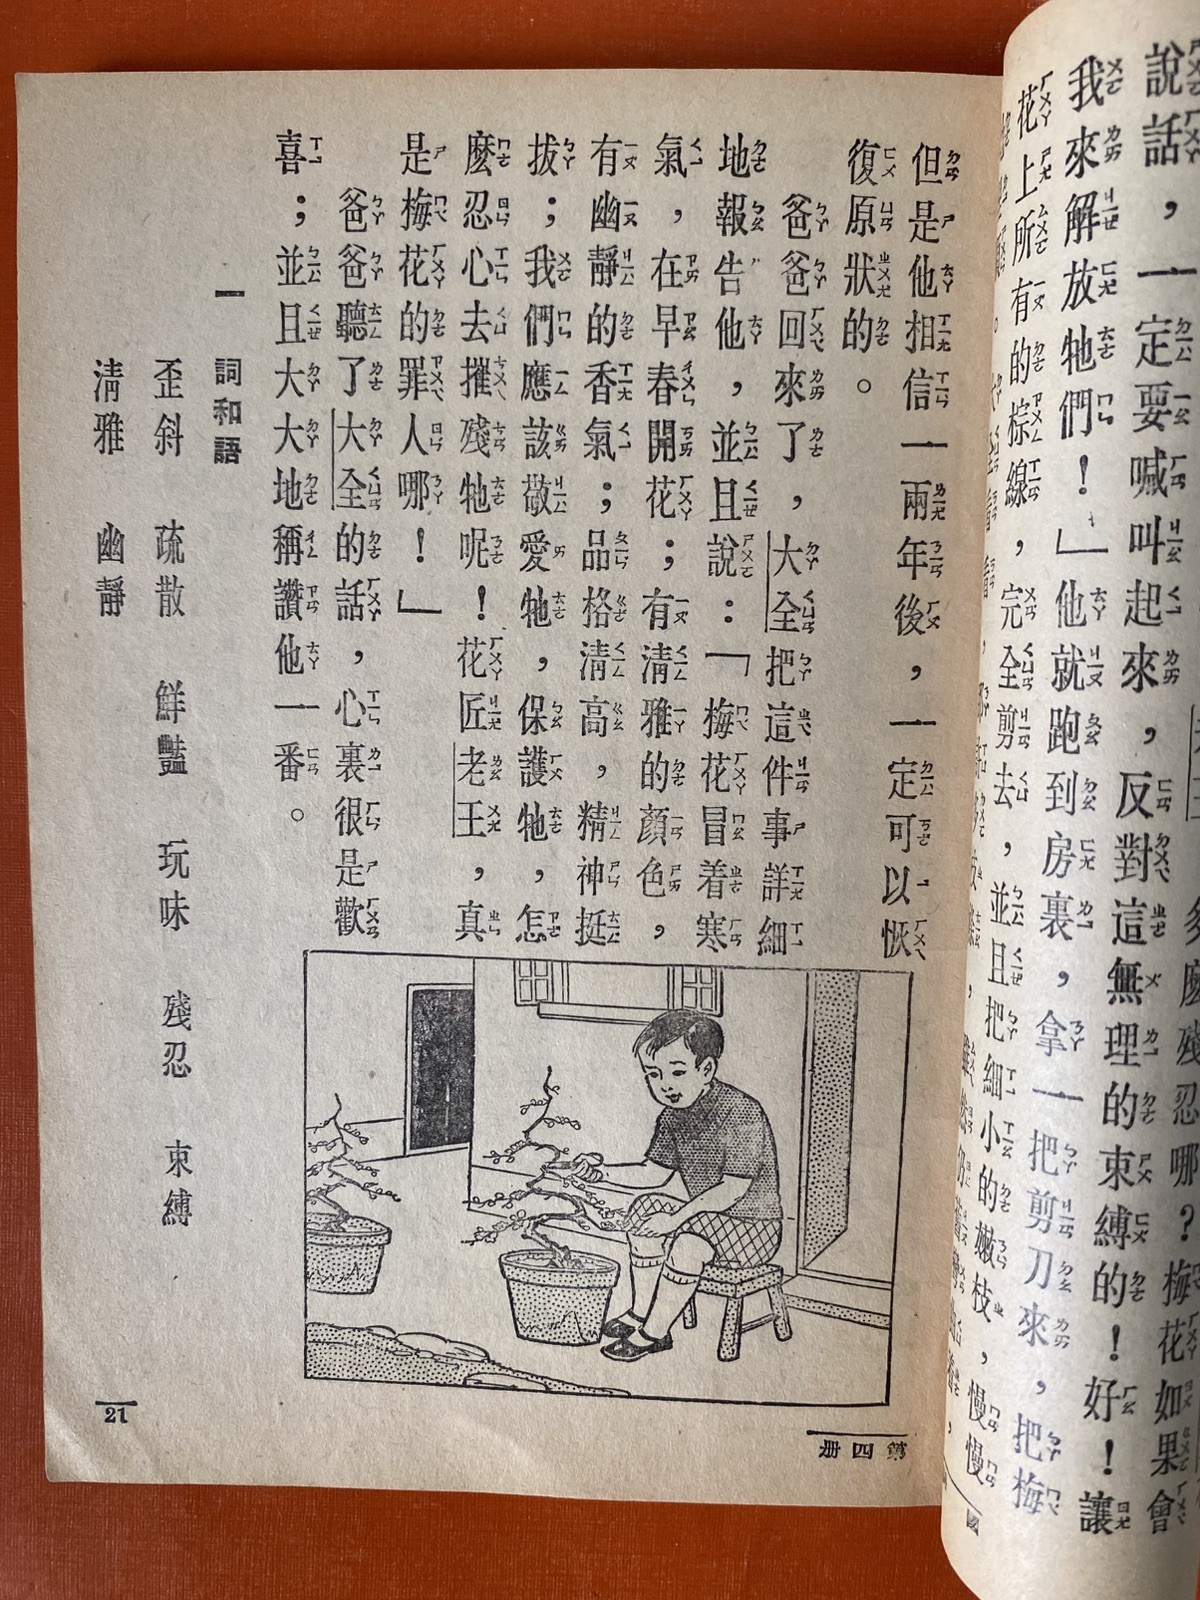 多麼殘忍哪？梅花如果會
說話，一定要喊叫起來，反對這無理的束縛的！好！讓
我來解放牠們！」他就跑到房裏，拿一把剪刀來，把梅
花上所有的棕線，完全剪去，並且把細小的嫩枝，慢慢
但是他相信一兩年後，一定可以恢
復原狀的。
爸爸回來了，大全把這件事詳細
地報告他，並且說：「梅花冒着寒
氣，在早春開花；有清雅的顏色，
有幽靜的香氣；品格清高，精神挺
拔；我們應該敬愛牠，保護牠，怎
麼忍心去摧殘牠呢！花匠老王，真
是梅花的罪人哪！」
爸爸聽了大全的話，心裏很是歡
喜；並且大大地稱讚他一番。
一 詞和語
歪斜 疏散 鮮豔 玩味 殘忍 束縛
清雅 幽靜
第四册
21